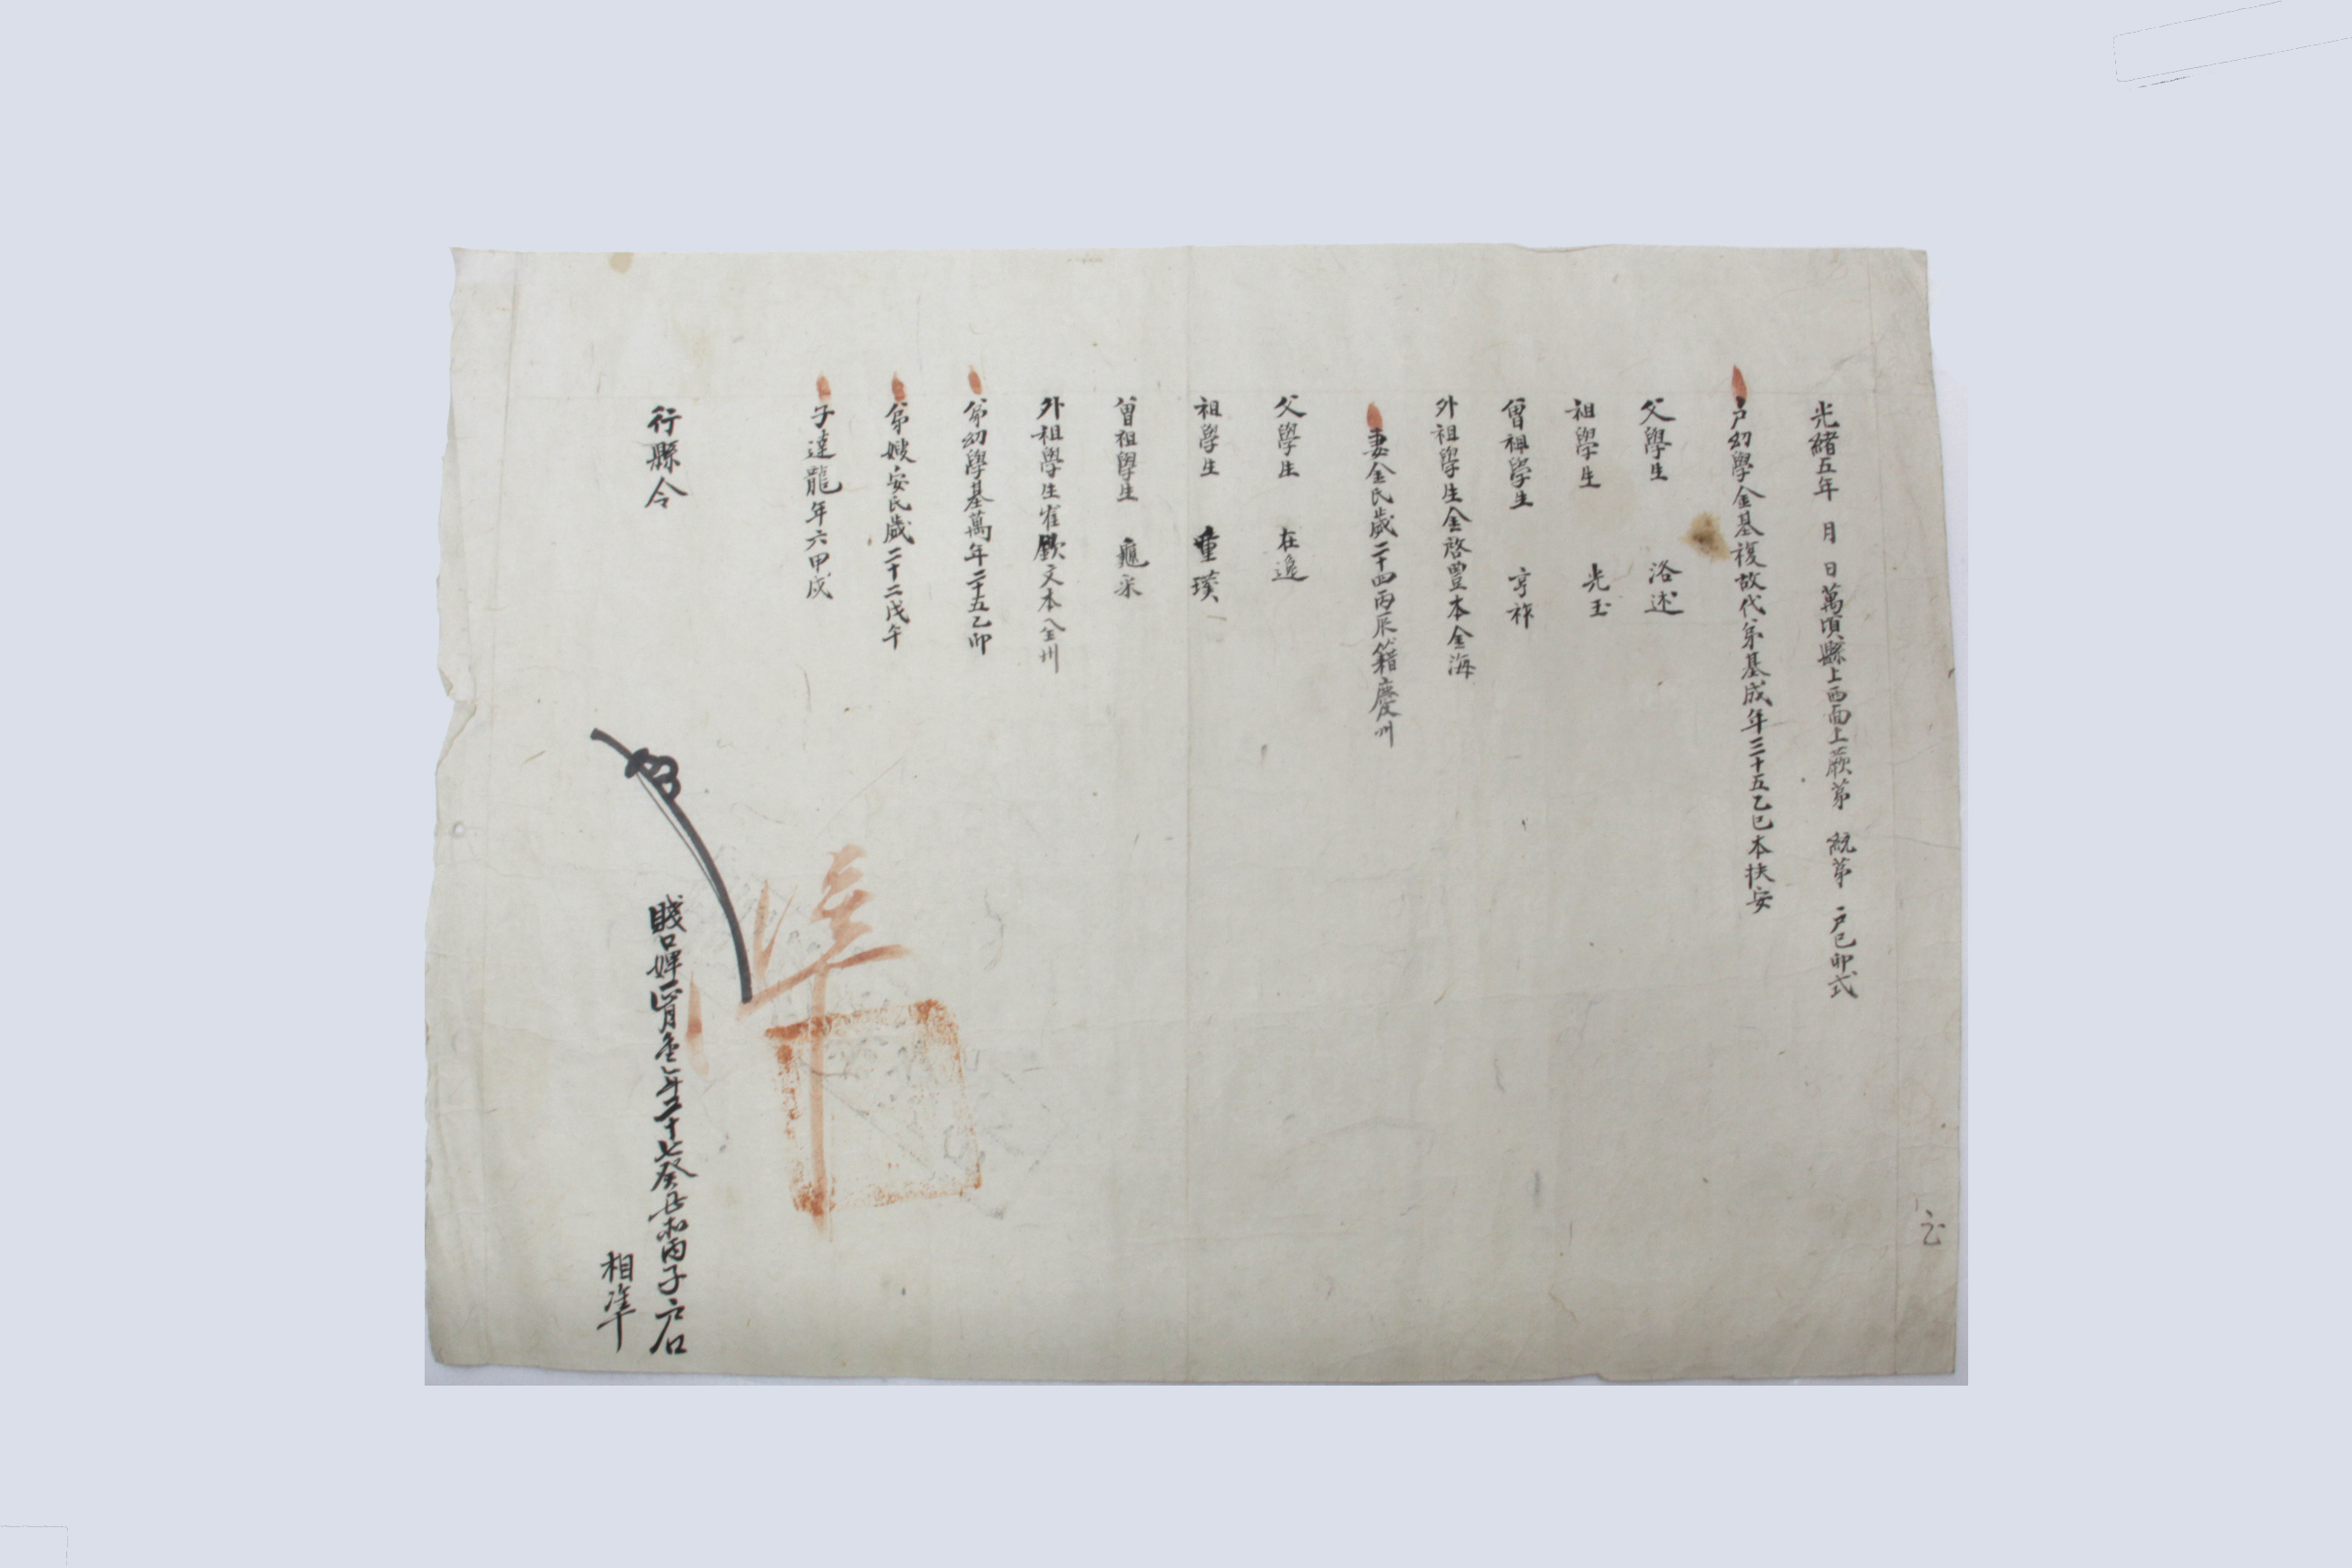 光緒五年 月 日萬頃縣上西面上蕨第 統第 戶己卯式
戶幼學金基複故代弟基成年三十五乙巳本扶安
父學生 洛述
祖學生 光玉
曾祖學生 亨祚
外祖學生金啓豊本金海
妻金氏歲二十四丙辰籍慶州
父學生 在逸
祖學生 重璞
曾祖學生 龜采
外祖學生崔欽文本全州
弟幼學基萬年二十五乙卯
弟嫂安氏歲二十二戊午
子達龍年六甲戌
行縣令
準
賤口婢 年二十七癸丑 丙子戶口
相準